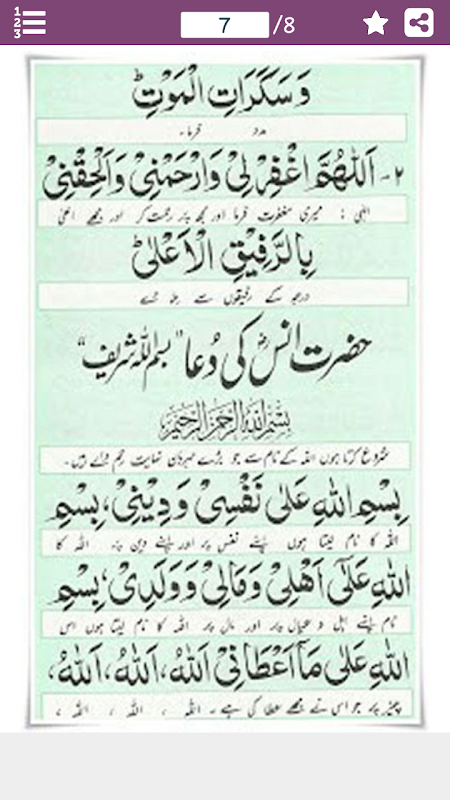 1
2
3
7 /8
وَسَكَرَاتِ الْمَوْتِ
مدد فرما۔
۲۔ اَللّٰهُمَّ اغْفِرْ لِيْ وَارْحَمْنِيْ وَاَلْحِقْنِيْ
الٰہی : میری مغفرت فرما اور مجھ پر رحمت کر اور مجھے اعلیٰ
بِالرَّفِيْقِ الْاَعْلٰى
درجہ کے رفیقوں سے ملا دے
حضرت انسؓ کی دُعا "بسم اللہ شریف"
بِسْمِ اللهِ الرَّحْمٰنِ الرَّحِيْمِ
شروع کرتا ہوں اللہ کے نام سے جو بڑے مہربان نہایت رحم والے ہیں۔
بِسْمِ اللهِ عَلٰى نَفْسِيْ وَدِيْنِيْ، بِسْمِ
اللہ کا نام لیتا ہوں اپنے نفس پر اور اپنے دین پر۔ اللہ کا
اللهِ عَلٰى اَهْلِيْ وَمَالِيْ وَوَلَدِيْ، بِسْمِ
نام اپنے اہل و عیال پر اور مال پر اللہ کا نام لیتا ہوں اس
اللهِ عَلٰى مَا اَعْطَانِيْ اَللهُ، اَللهُ، اَللهُ،
چیز پر جو اس نے مجھے عطا کی ہے ۔ اللہ ، اللہ ، اللہ ،